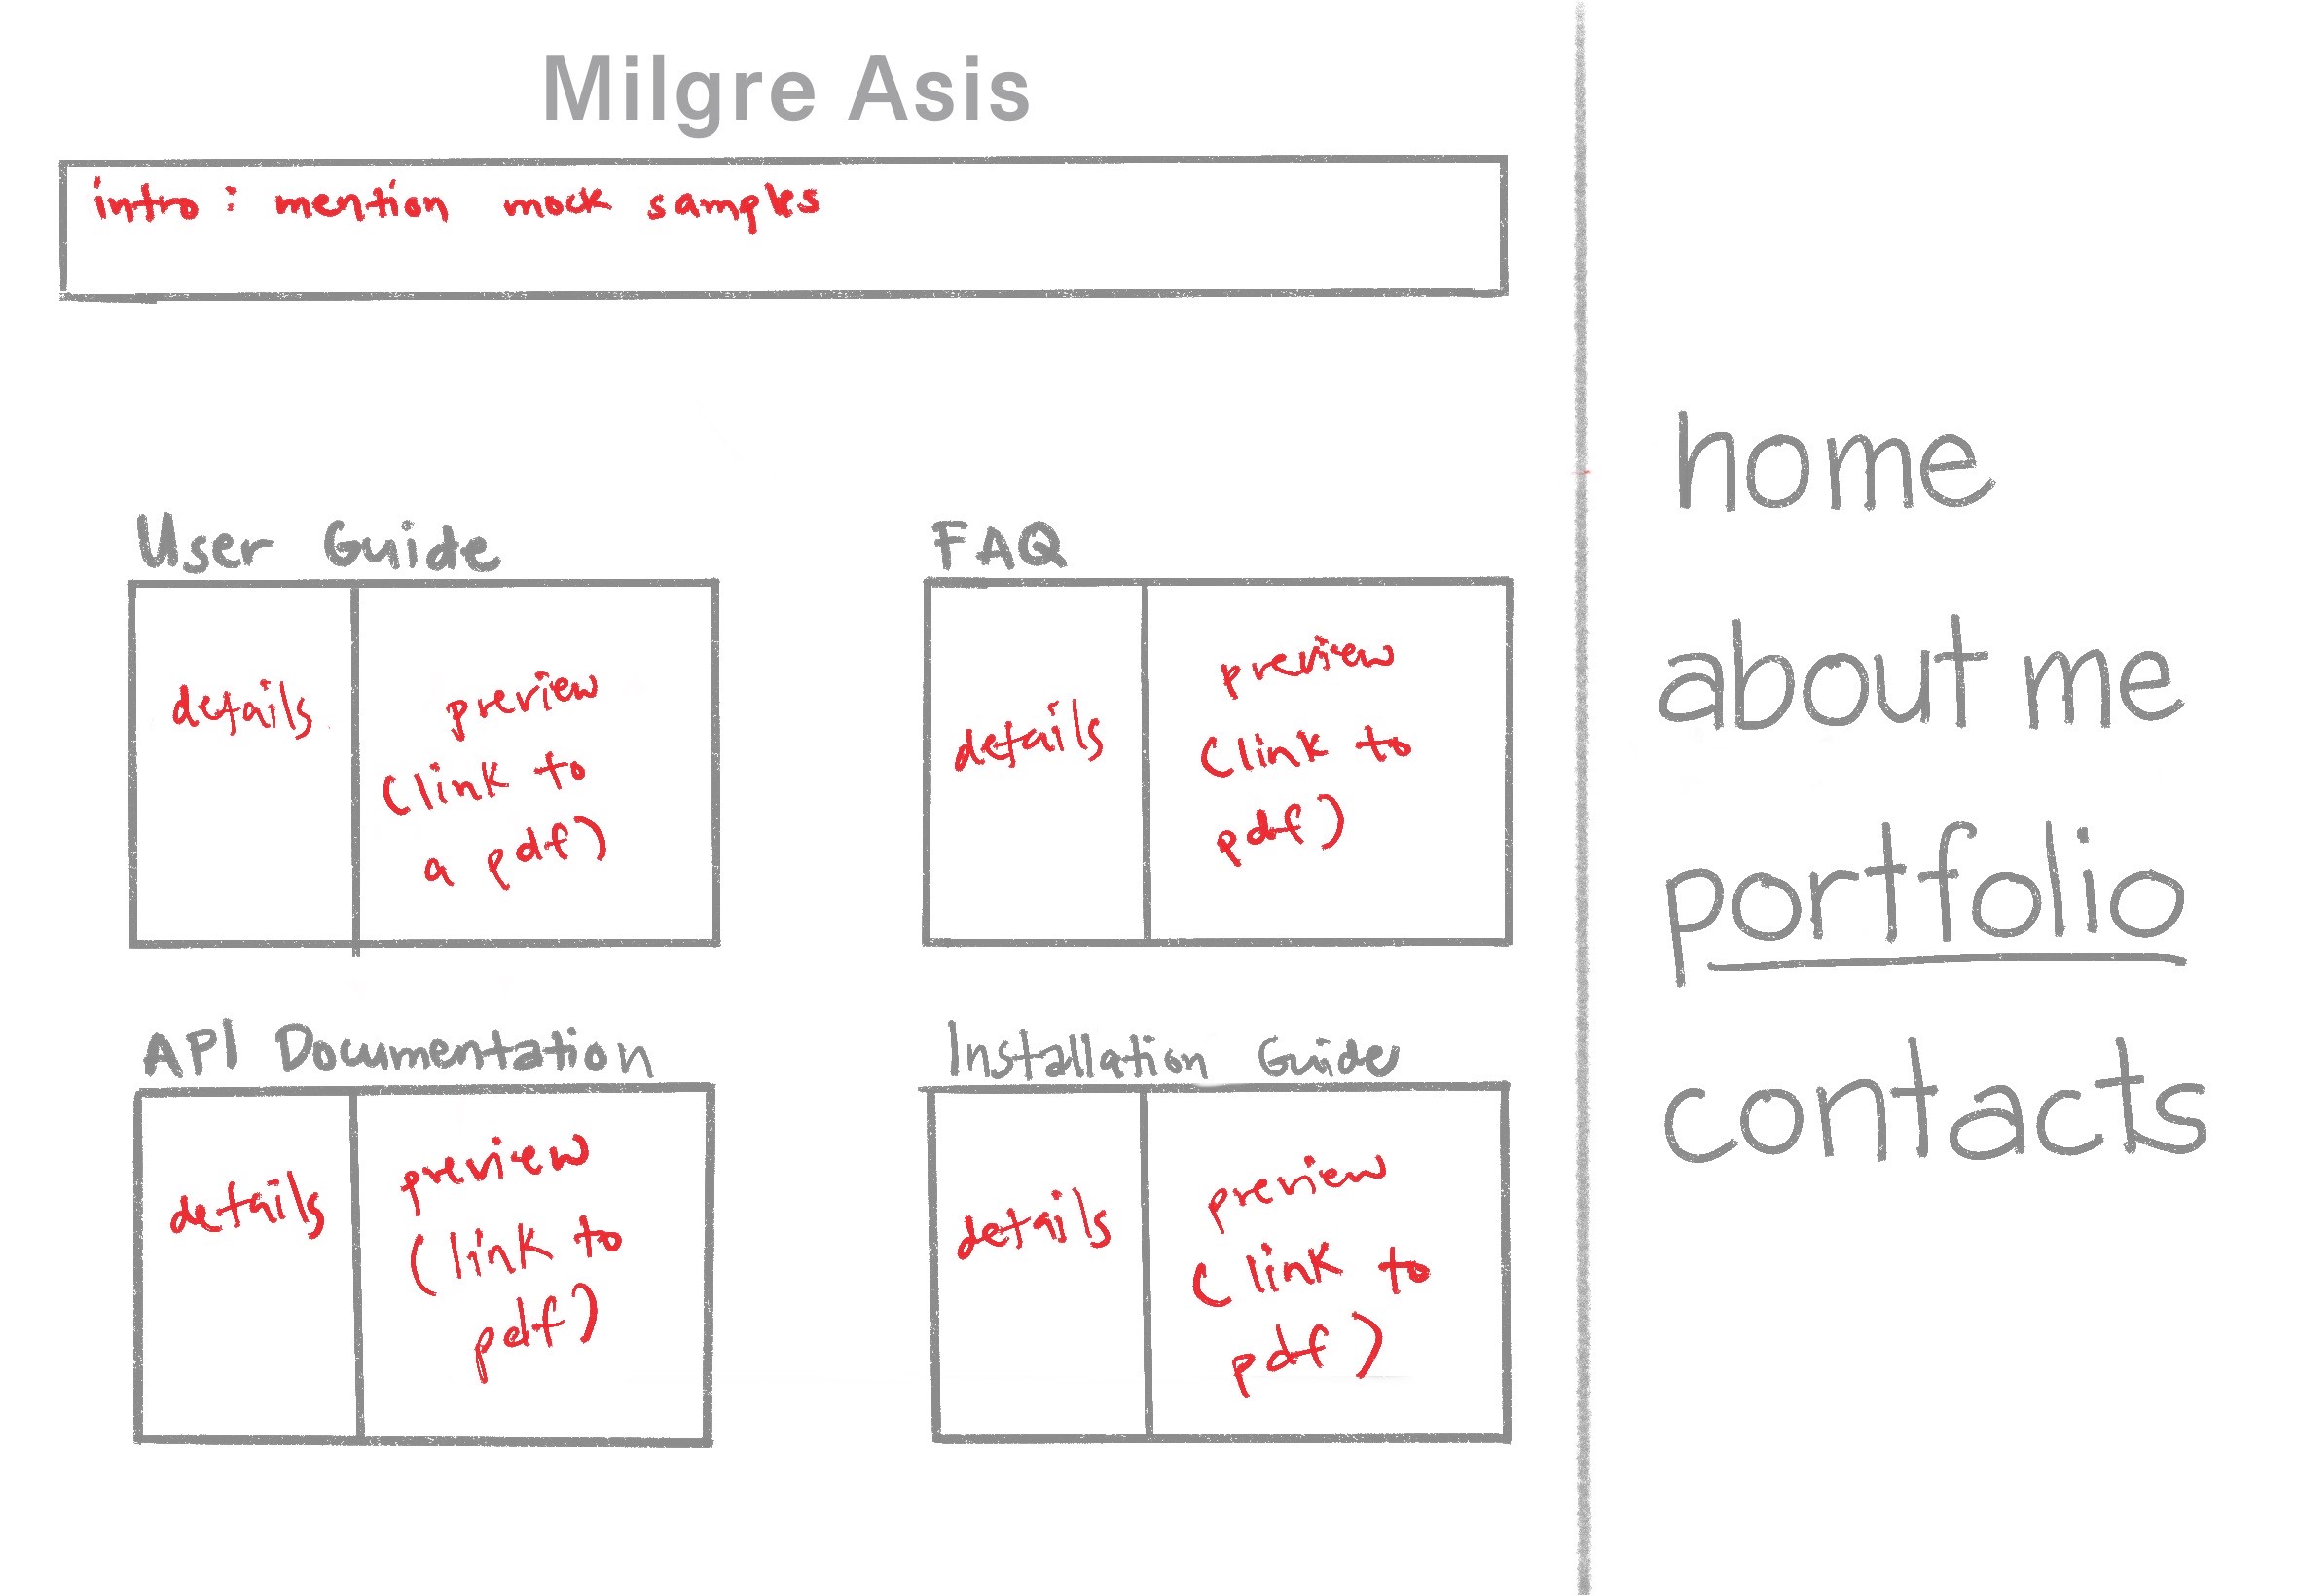 Milgre Asis
intro: mention mock samples
User Guide
details
preview
(link to
a pdf)
FAQ
details
preview
(link to
pdf)
API Documentation
details
preview
(link to
pdf)
Installation Guide
details
preview
(link to
pdf)
home
about me
portfolio
contacts